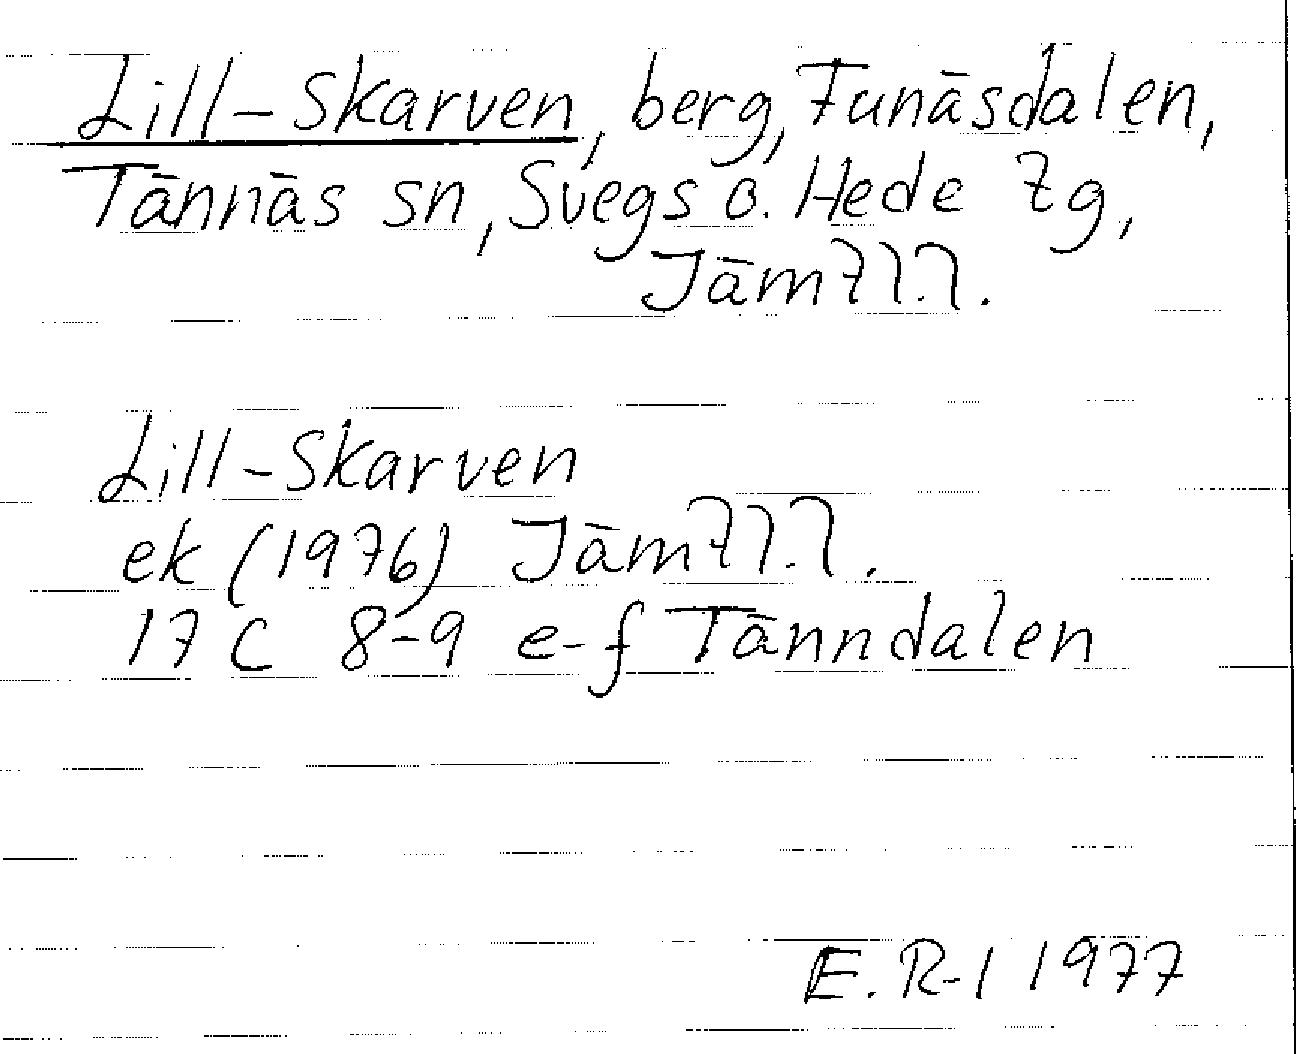 Lill-Skarven, berg, Funäsdalen,
Tännäs sn, Svegs o. Hede tg,
Jämtl.l.
Lill-Skarven
ek (1976) Jämtl.l.
17 C 8-9 e-f Tänndalen
E. R-l 1977